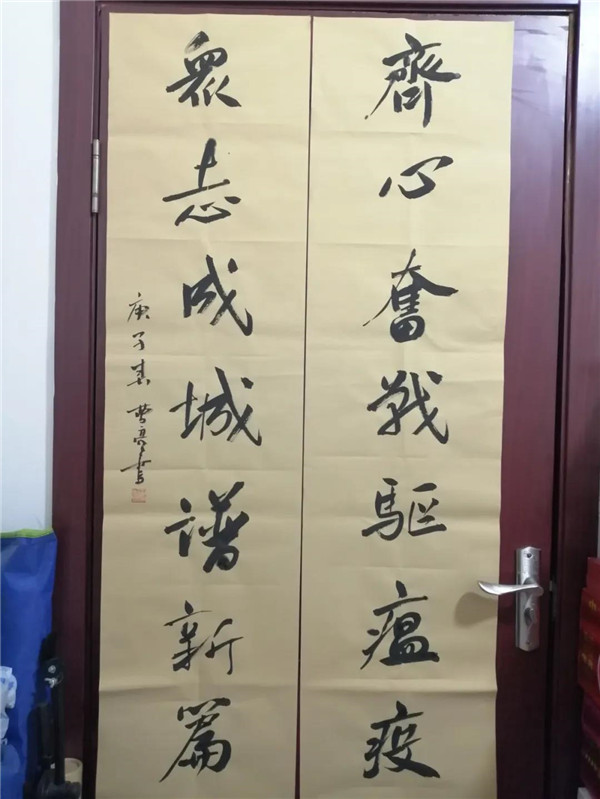 齊心奮戰驅瘟疫
眾志成城譜新篇
庚子春 曹亮书